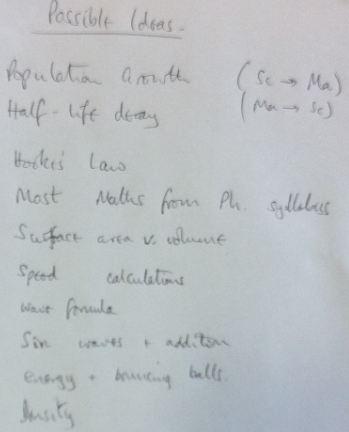 Possible Ideas.
Population Growth (Sc → Ma)
Half-life decay (Ma → Sc)
Hooke's Law
Most Maths from Ph. syllabus
Surface area v. volume
Speed calculations
wave formula
Sin waves + addition
energy + bouncing balls.
density